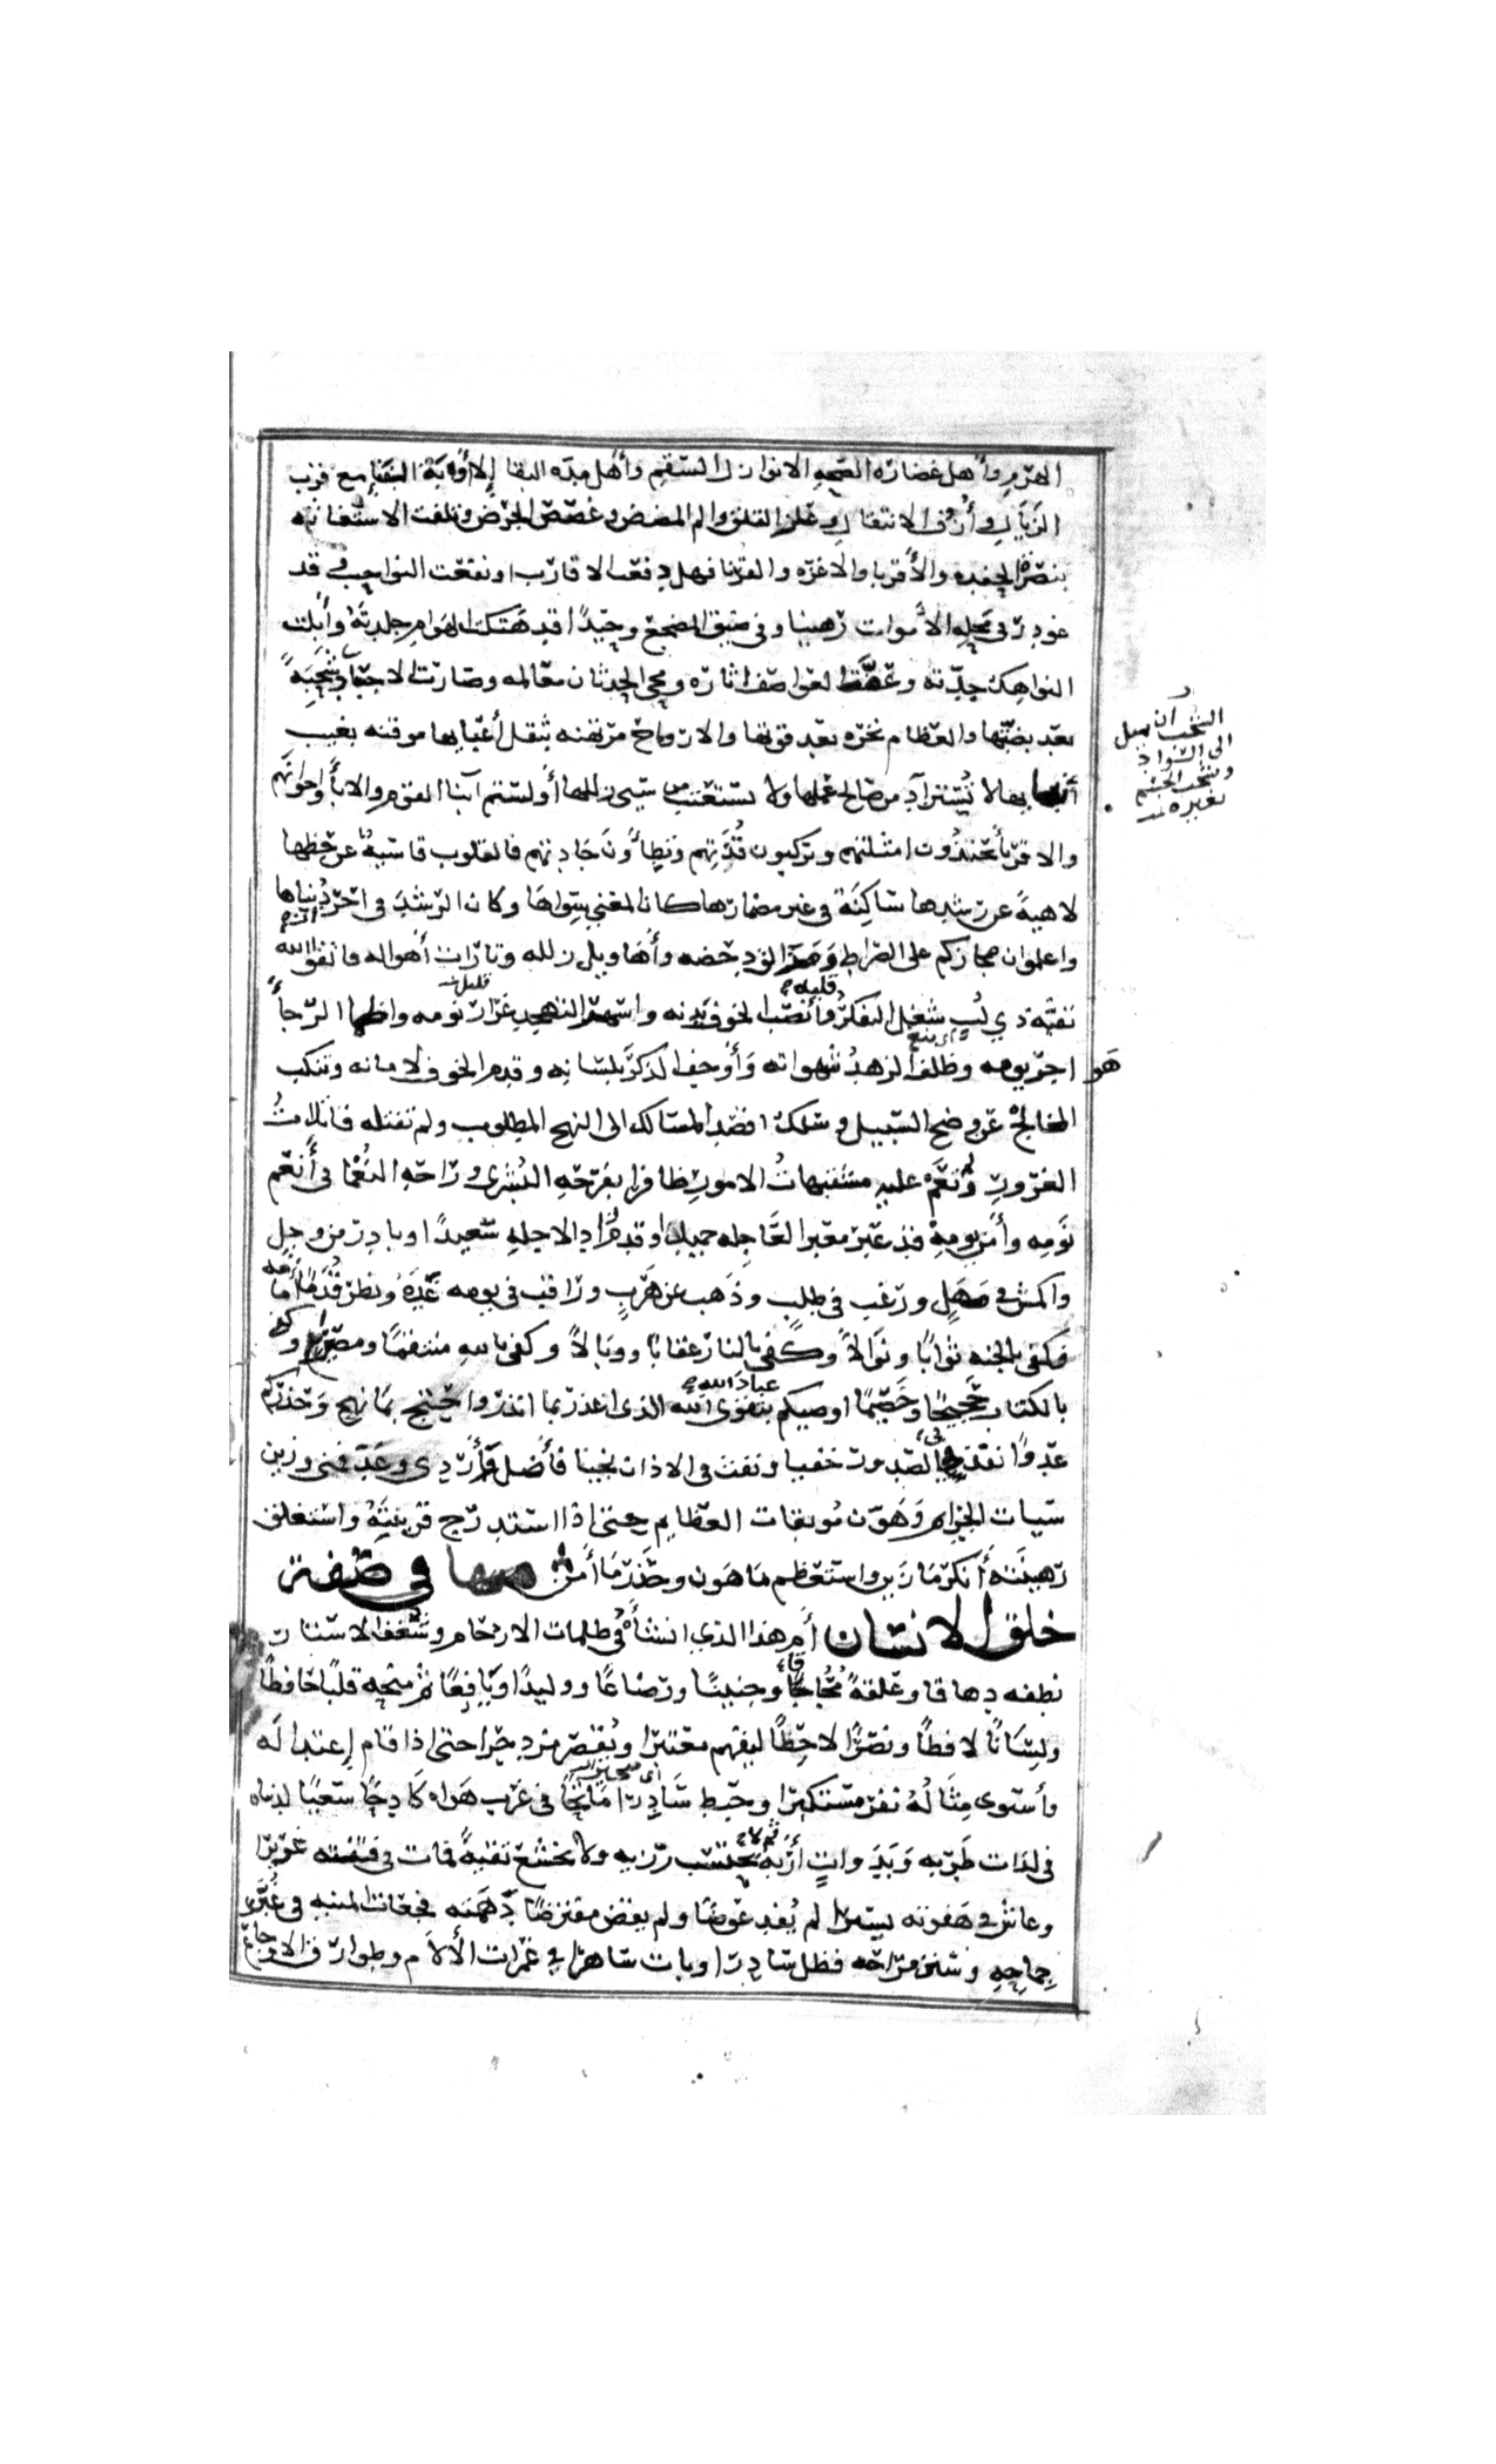 الهرم وأهل غضاره الصحه الا نوازل السقم وأهل مده البقا إلا أونة الفنا مع قرب
الزيال وأزوف الانتقال وعلز القلق والم المضض وغصص الجرض وتلفت الاستغاثه
بنصره الحفده والأقربا والاعزه والقرنا فهل دفعت الاقارب او نفعت النواحب وقد
غودر في محله الأموات رهينا وفي ضيق المضجع وحيدًا قد هتكت الهوام جلدته وأبلت
النواهك جدته وعفت العواصف اثاره ومحى الحدثان معالمه وصارت الاجساد شحبةً
بعد بضتها والعظام نخره بعد قوتها والارواح مرتهنه بثقل أعبايها موقنه بغيب
أنبايها لا تُستزاد من صالح عملها ولا تستعتب من سيى زللها أولستم أبنا القوم والابأ واخوانهم
والاقربأ تحتذُون امثلتهم وتركبون قدتهم وتطاؤن جادتهم فالقلوب قاسيةٌ عن حظها
لاهيةً عن رشدها سالكة في غير مضمارها كان المعني سواها وكان الرشد في احراز دنياها
واعلموا ان مجازكم على الصراط ومزالق دحضه وأهاويل زلله وتارات أهواله فاتقوا الله
تقية ذي لُب شغل التفكرُ قلبه وأنصب الخوف بدنه واسهر التهجد غرار نومه واظما الرجأ
هواجر يومه وظلف الزهدُ شهواته وأوجف الذكر بلسانه وقدم الخوف لامانه وتنكب
المخالج عن وضح السبيل وسلك اقصد المسالك الى النهج المطلوب ولم تفتله فاتلاتُ
الغرور ولم تعم عليه مشتبهاتُ الامور ظافرا بفرحه البُشرى وراحه النُعما في أنعم
نومه وأمن يومه قد عبر معبر العاجله حميدا وقدم زاد الاجله سعيدًا وبادر من وجل
واكمش في مهل ورغب في طلب وذهب عن هرب وراقب في يومه غده ونظر قُدُمًا أمامه
فكفى بالجنه ثوابًا ونوالاً وكفى بالنار عقابًا ووبالاً وكفى بالله منتقمًا ونصيرا وكفى
بالكتاب حجيجًا وخصيمًا اوصيكم عباد الله بتقوى الله الذى اعذر بما انذر واحتج بما نهج وحذركم
عدوًا نفذ في الصدور خفيا ونفث في الاذان نجيا فأضل وأردى ووعد فمنى وزين
سيات الجرايم وهون موبقات العظايم حتى اذا استدرج قرينتهُ واستغلق
رهينته أنكر ما زين واستعظم ما هون وحذر ما أمن منها في صفة
خلق الانسان أم هذا الذي انشأه في ظلمات الارحام وشغف الاستار
نطفه دهاقا وعلقةً محاقًا وجنينًا وراضعًا ووليدًا ويافعًا ثم منحه قلبًا حافظًا
ولسانًا لافظًا وبصرًا لاحظًا ليفهم معتبرا ويقصر مزدجرا حتى اذا قام إعتداله
واستوى مثالُهُ نفر مستكبرا وخبط سادرا ماتحًا في غرب هواه كادحًا سعيًا لدنياه
في لذات طربه وبدوات أربه ثم لا يحتسب رزيه ولا يخشع تقيةً فمات في فتنته غريرا
وعاش في هفوته يسيرا لم يُفد عوضا ولم يقض مفترضًا دهمته فجعات المنيه في غُبّر
جماحه وسنن مراحه فظل سادرا وبات ساهرا في غمرات الألام وطوارق الاوجاع
الشحب ان يميل
الى السواد